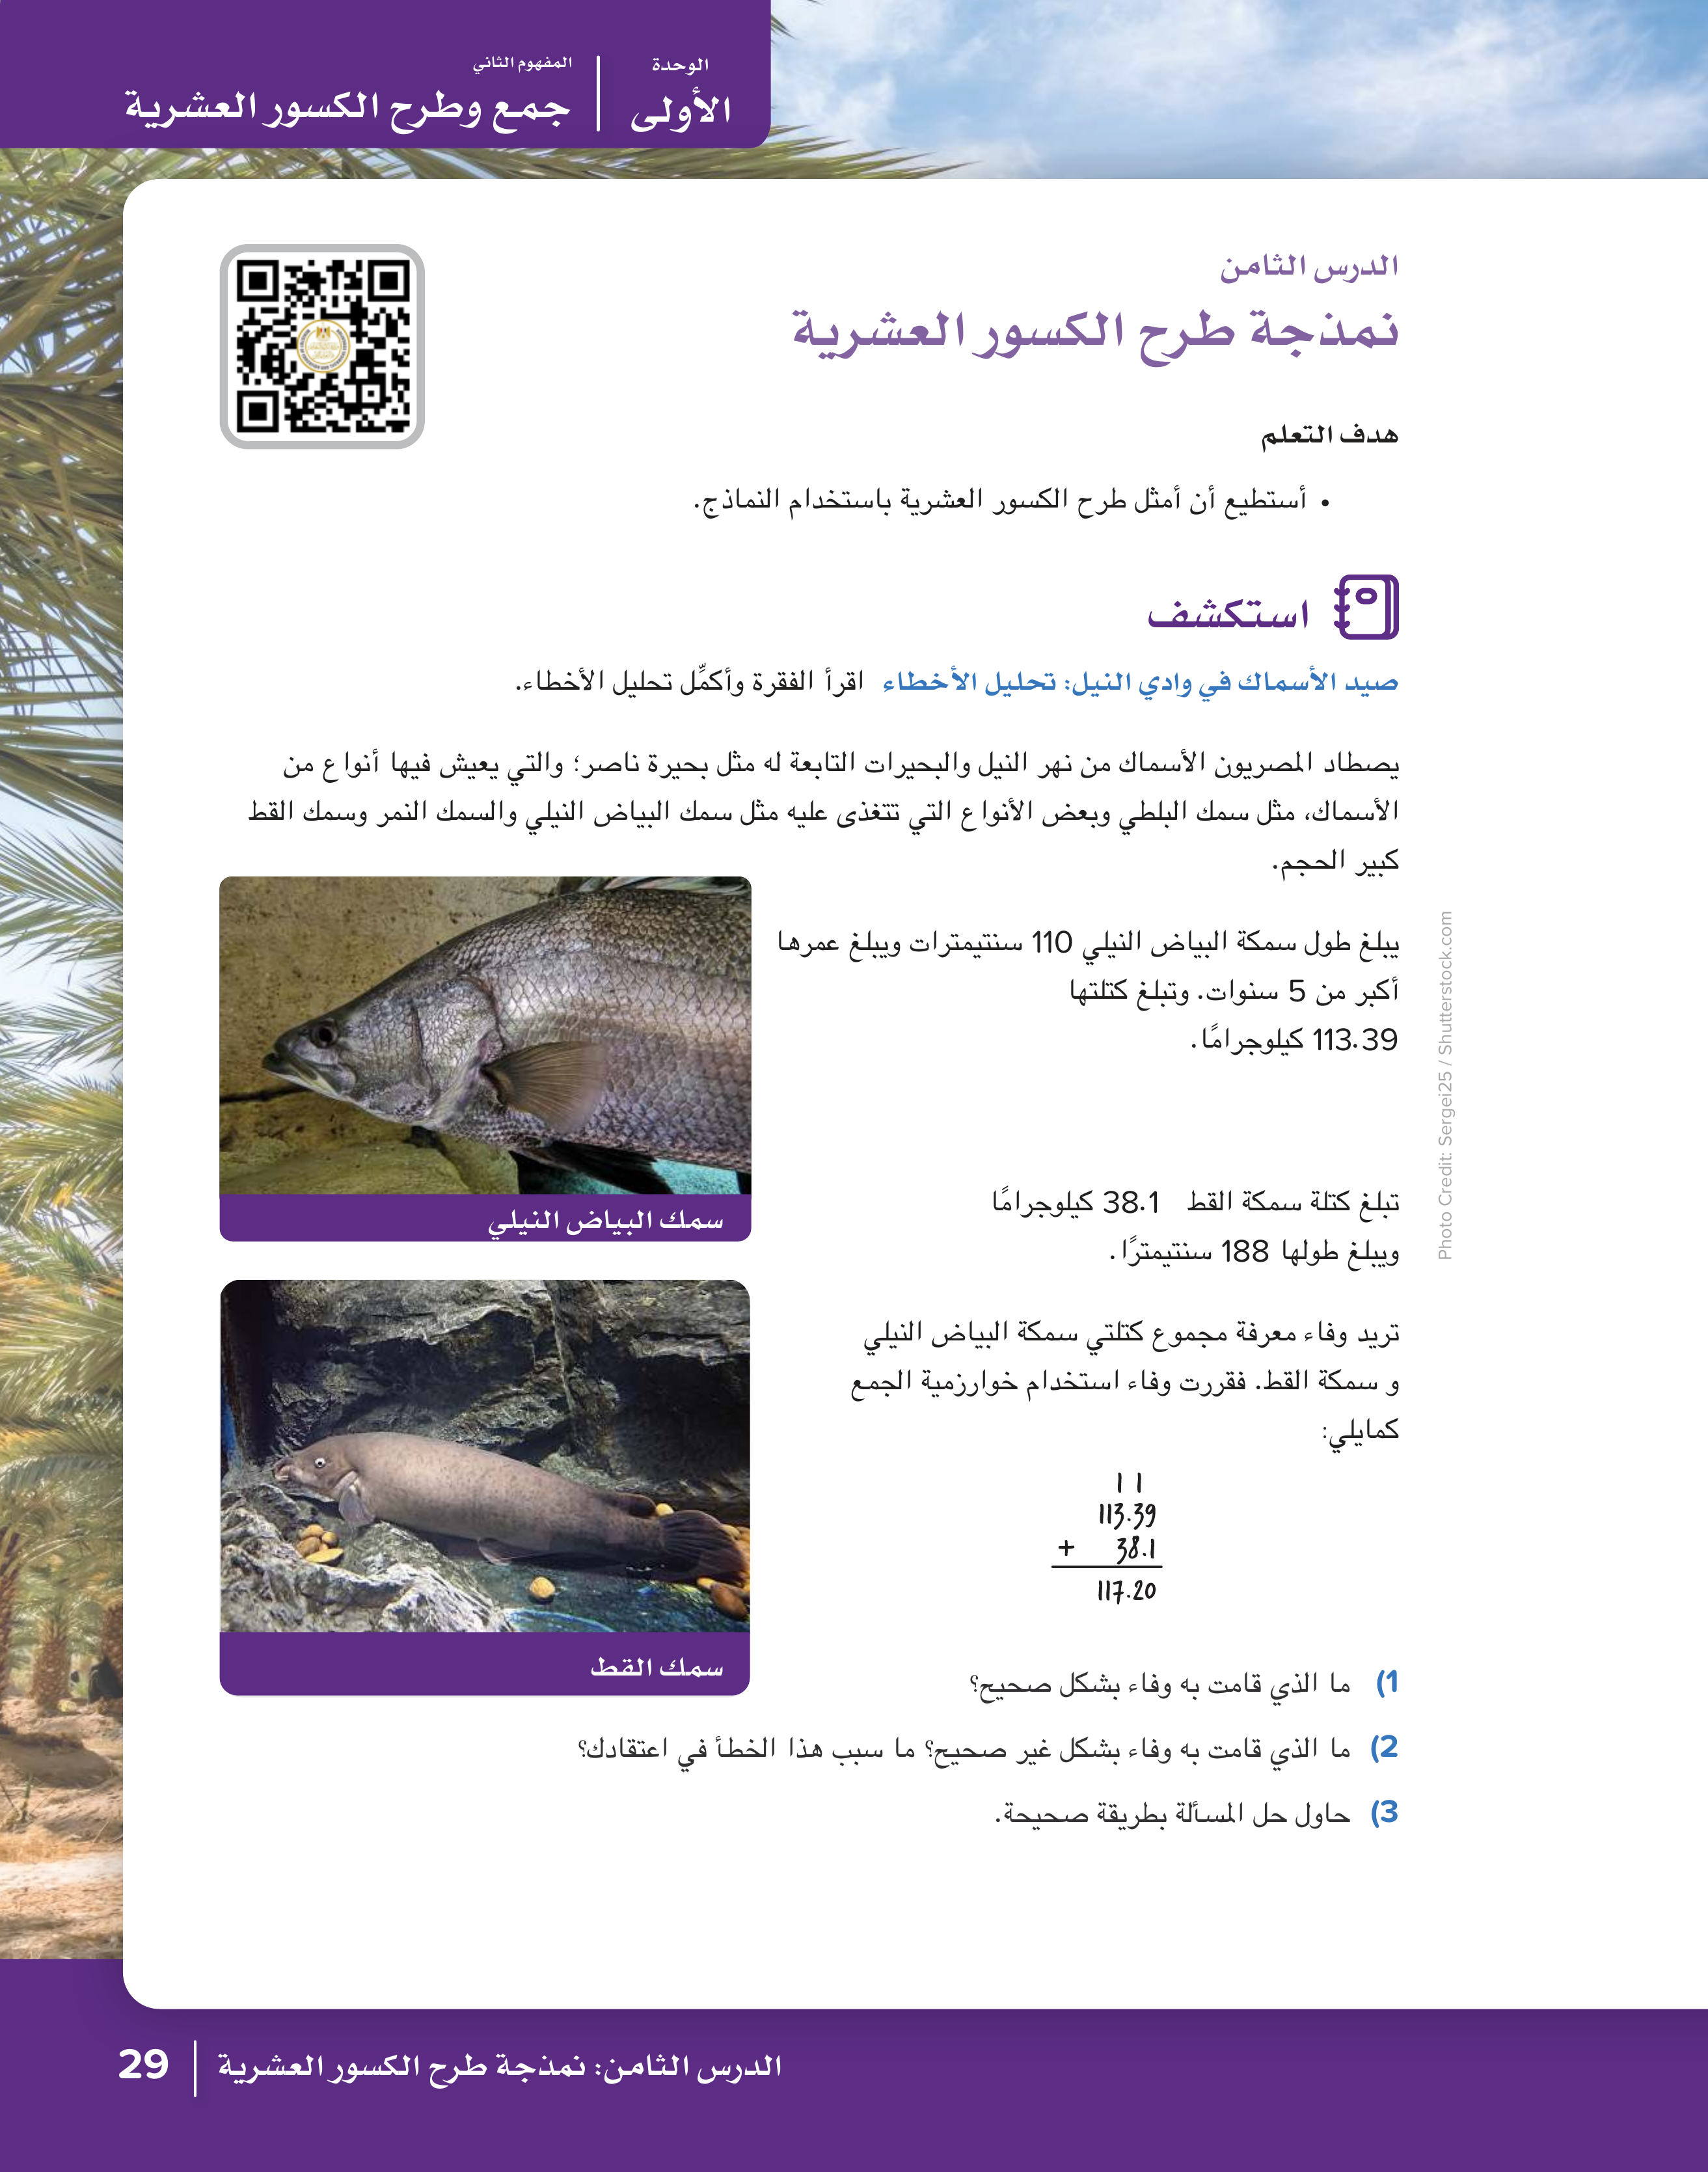 الوحدة
الأولى
المفهوم الثاني
جمع وطرح الكسور العشرية
الدرس الثامن
نمذجة طرح الكسور العشرية
هدف التعلم
• أستطيع أن أمثل طرح الكسور العشرية باستخدام النماذج.
استكشف
صيد الأسماك في وادي النيل: تحليل الأخطاء اقرأ الفقرة وأكمِّل تحليل الأخطاء.
يصطاد المصريون الأسماك من نهر النيل والبحيرات التابعة له مثل بحيرة ناصر؛ والتي يعيش فيها أنواع من
الأسماك، مثل سمك البلطي وبعض الأنواع التي تتغذى عليه مثل سمك البياض النيلي والسمك النمر وسمك القط
كبير الحجم.
يبلغ طول سمكة البياض النيلي 110 سنتيمترات ويبلغ عمرها
أكبر من 5 سنوات. وتبلغ كتلتها
113.39 كيلوجرامًا.
سمك البياض النيلي
تبلغ كتلة سمكة القط 38.1 كيلوجرامًا
ويبلغ طولها 188 سنتيمترًا.
تريد وفاء معرفة مجموع كتلتي سمكة البياض النيلي
و سمكة القط. فقررت وفاء استخدام خوارزمية الجمع
كمايلي:
1 1
113.39
+ 38.1
117.20
سمك القط
1) ما الذي قامت به وفاء بشكل صحيح؟
2) ما الذي قامت به وفاء بشكل غير صحيح؟ ما سبب هذا الخطأ في اعتقادك؟
3) حاول حل المسألة بطريقة صحيحة.
Photo Credit: Sergei25 / Shutterstock.com
الدرس الثامن: نمذجة طرح الكسور العشرية
29